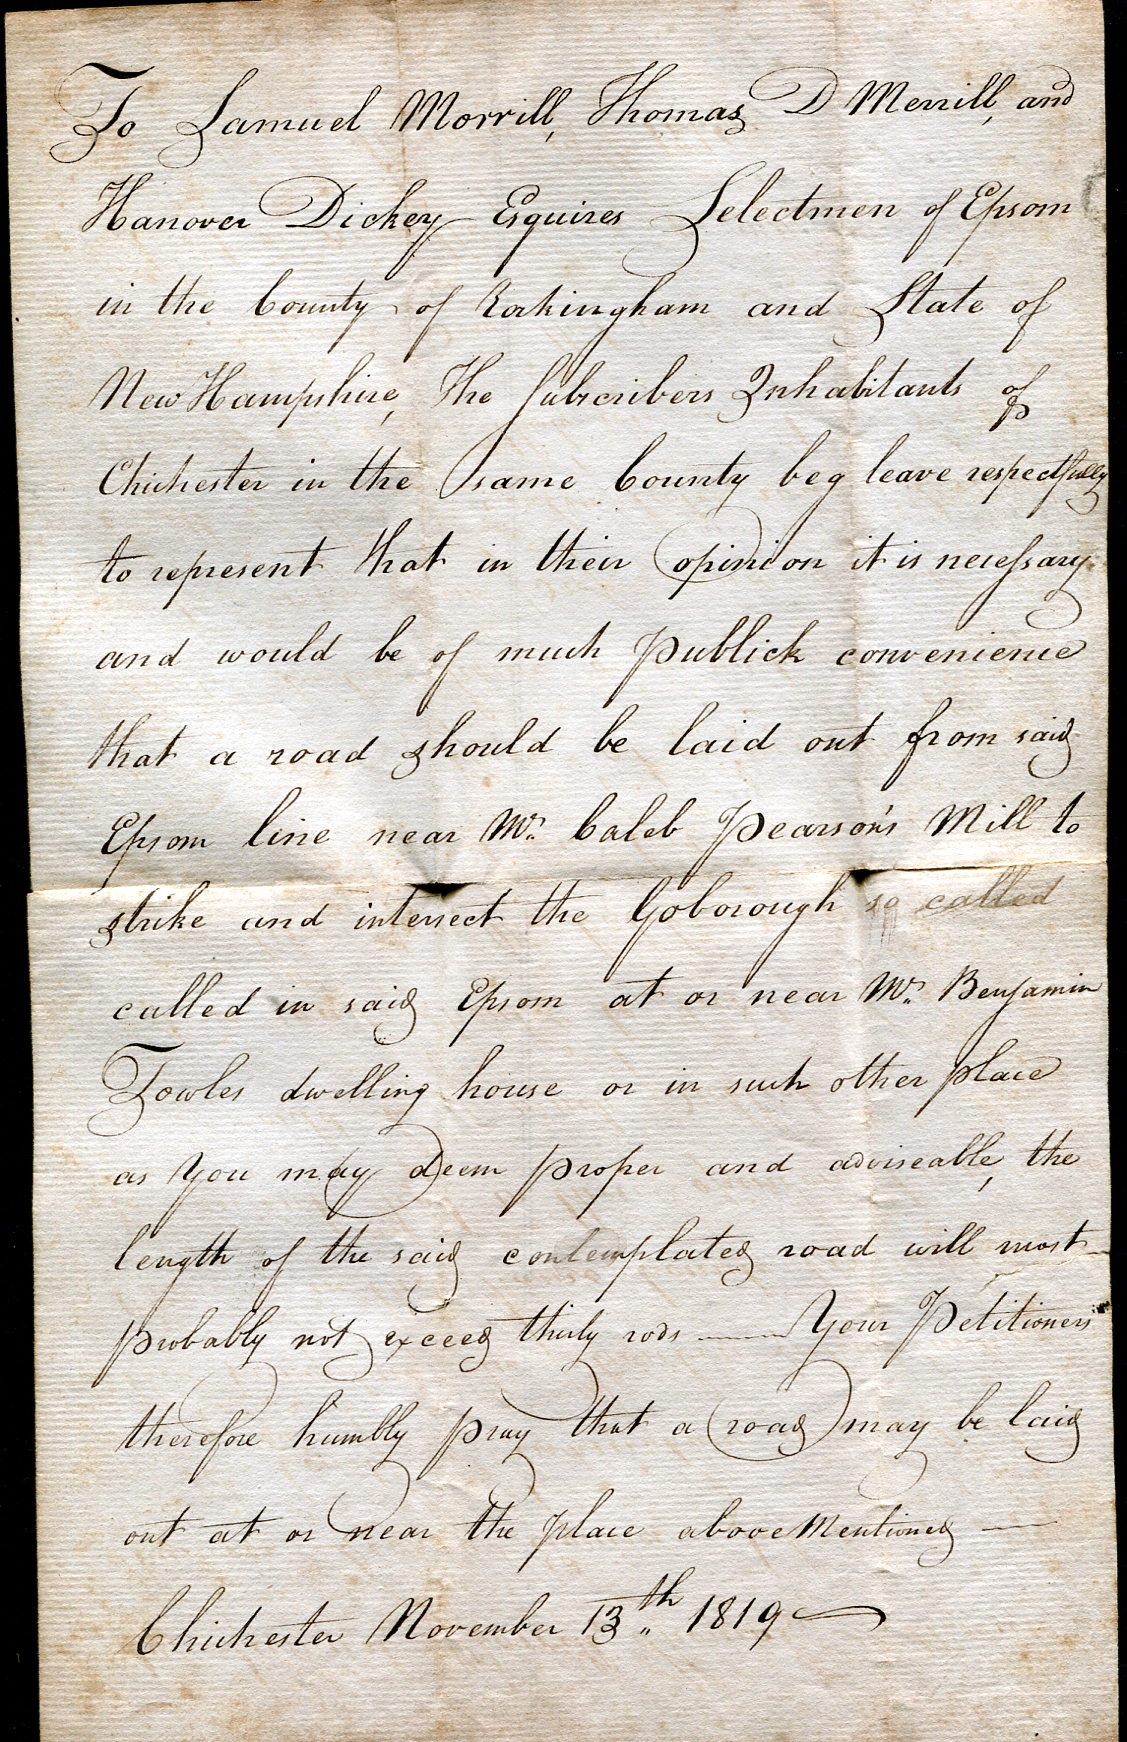 To Samuel Morrill, Thomas D Merrill, and
Hanover Dickey Esquires Selectmen of Epsom
in the County of Rockingham and State of
New Hampshire, The Subscribers Inhabitants of
Chichester in the same County beg leave respectfully
to represent that in their opinion it is necessary
and would be of much Publick convenience
that a road should be laid out from said
Epsom line near Mr. Caleb Pearson's Mill to
strike and intersect the Goborough so called
called in said Epsom at or near Mr. Benjamin
Towles dwelling house or in such other place
as you may deem proper and adviseable, the
length of the said contemplated road will most
probably not exceed thirty rods —— Your Petitioners
therefore humbly pray that a road may be laid
out at or near the place above Mentioned —
Chichester November 13th 1819